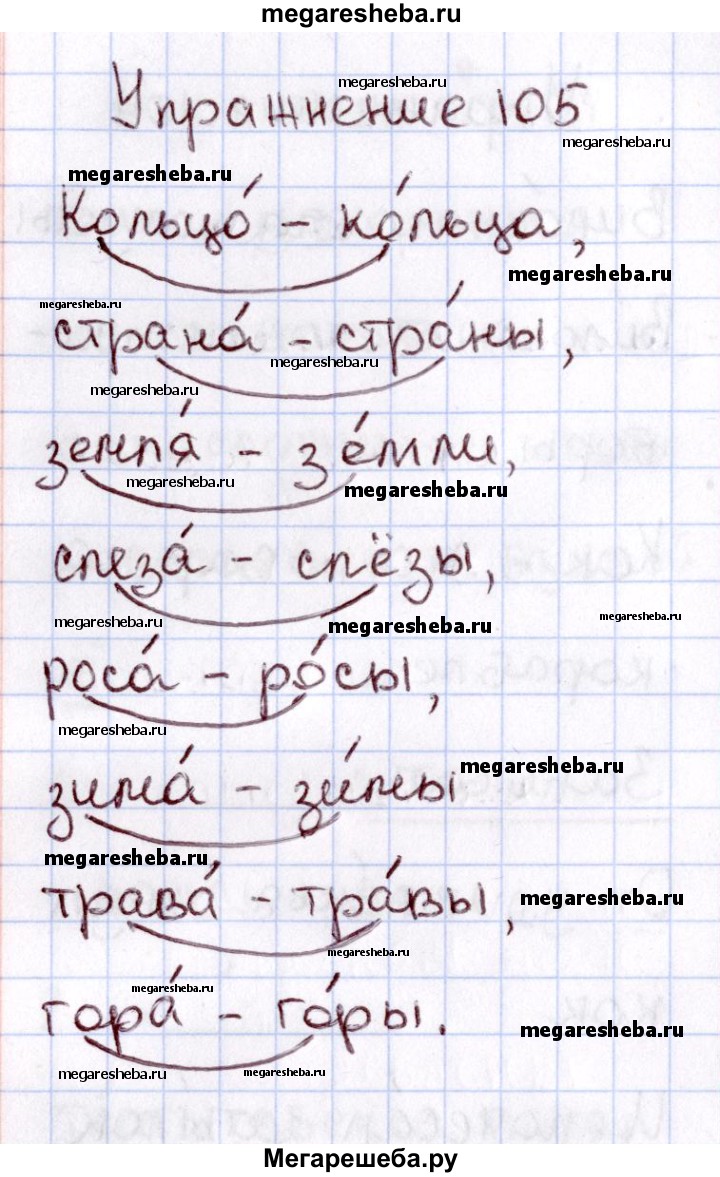 megaresheba.ru
megaresheba.ru
Упражнение 105
megaresheba.ru
megaresheba.ru
Кольцо́ – ко́льца,
megaresheba.ru
megaresheba.ru
страна́ – стра́ны,
megaresheba.ru
megaresheba.ru
земля́ – зе́мли,
megaresheba.ru
megaresheba.ru
слеза́ – слёзы,
megaresheba.ru
megaresheba.ru
megaresheba.ru
роса́ – ро́сы,
megaresheba.ru
megaresheba.ru
зима́ – зи́мы
megaresheba.ru
трава́ – тра́вы,
megaresheba.ru
megaresheba.ru
megaresheba.ru
гора́ – го́ры.
megaresheba.ru
megaresheba.ru
megaresheba.ru
Мегарешеба.ру